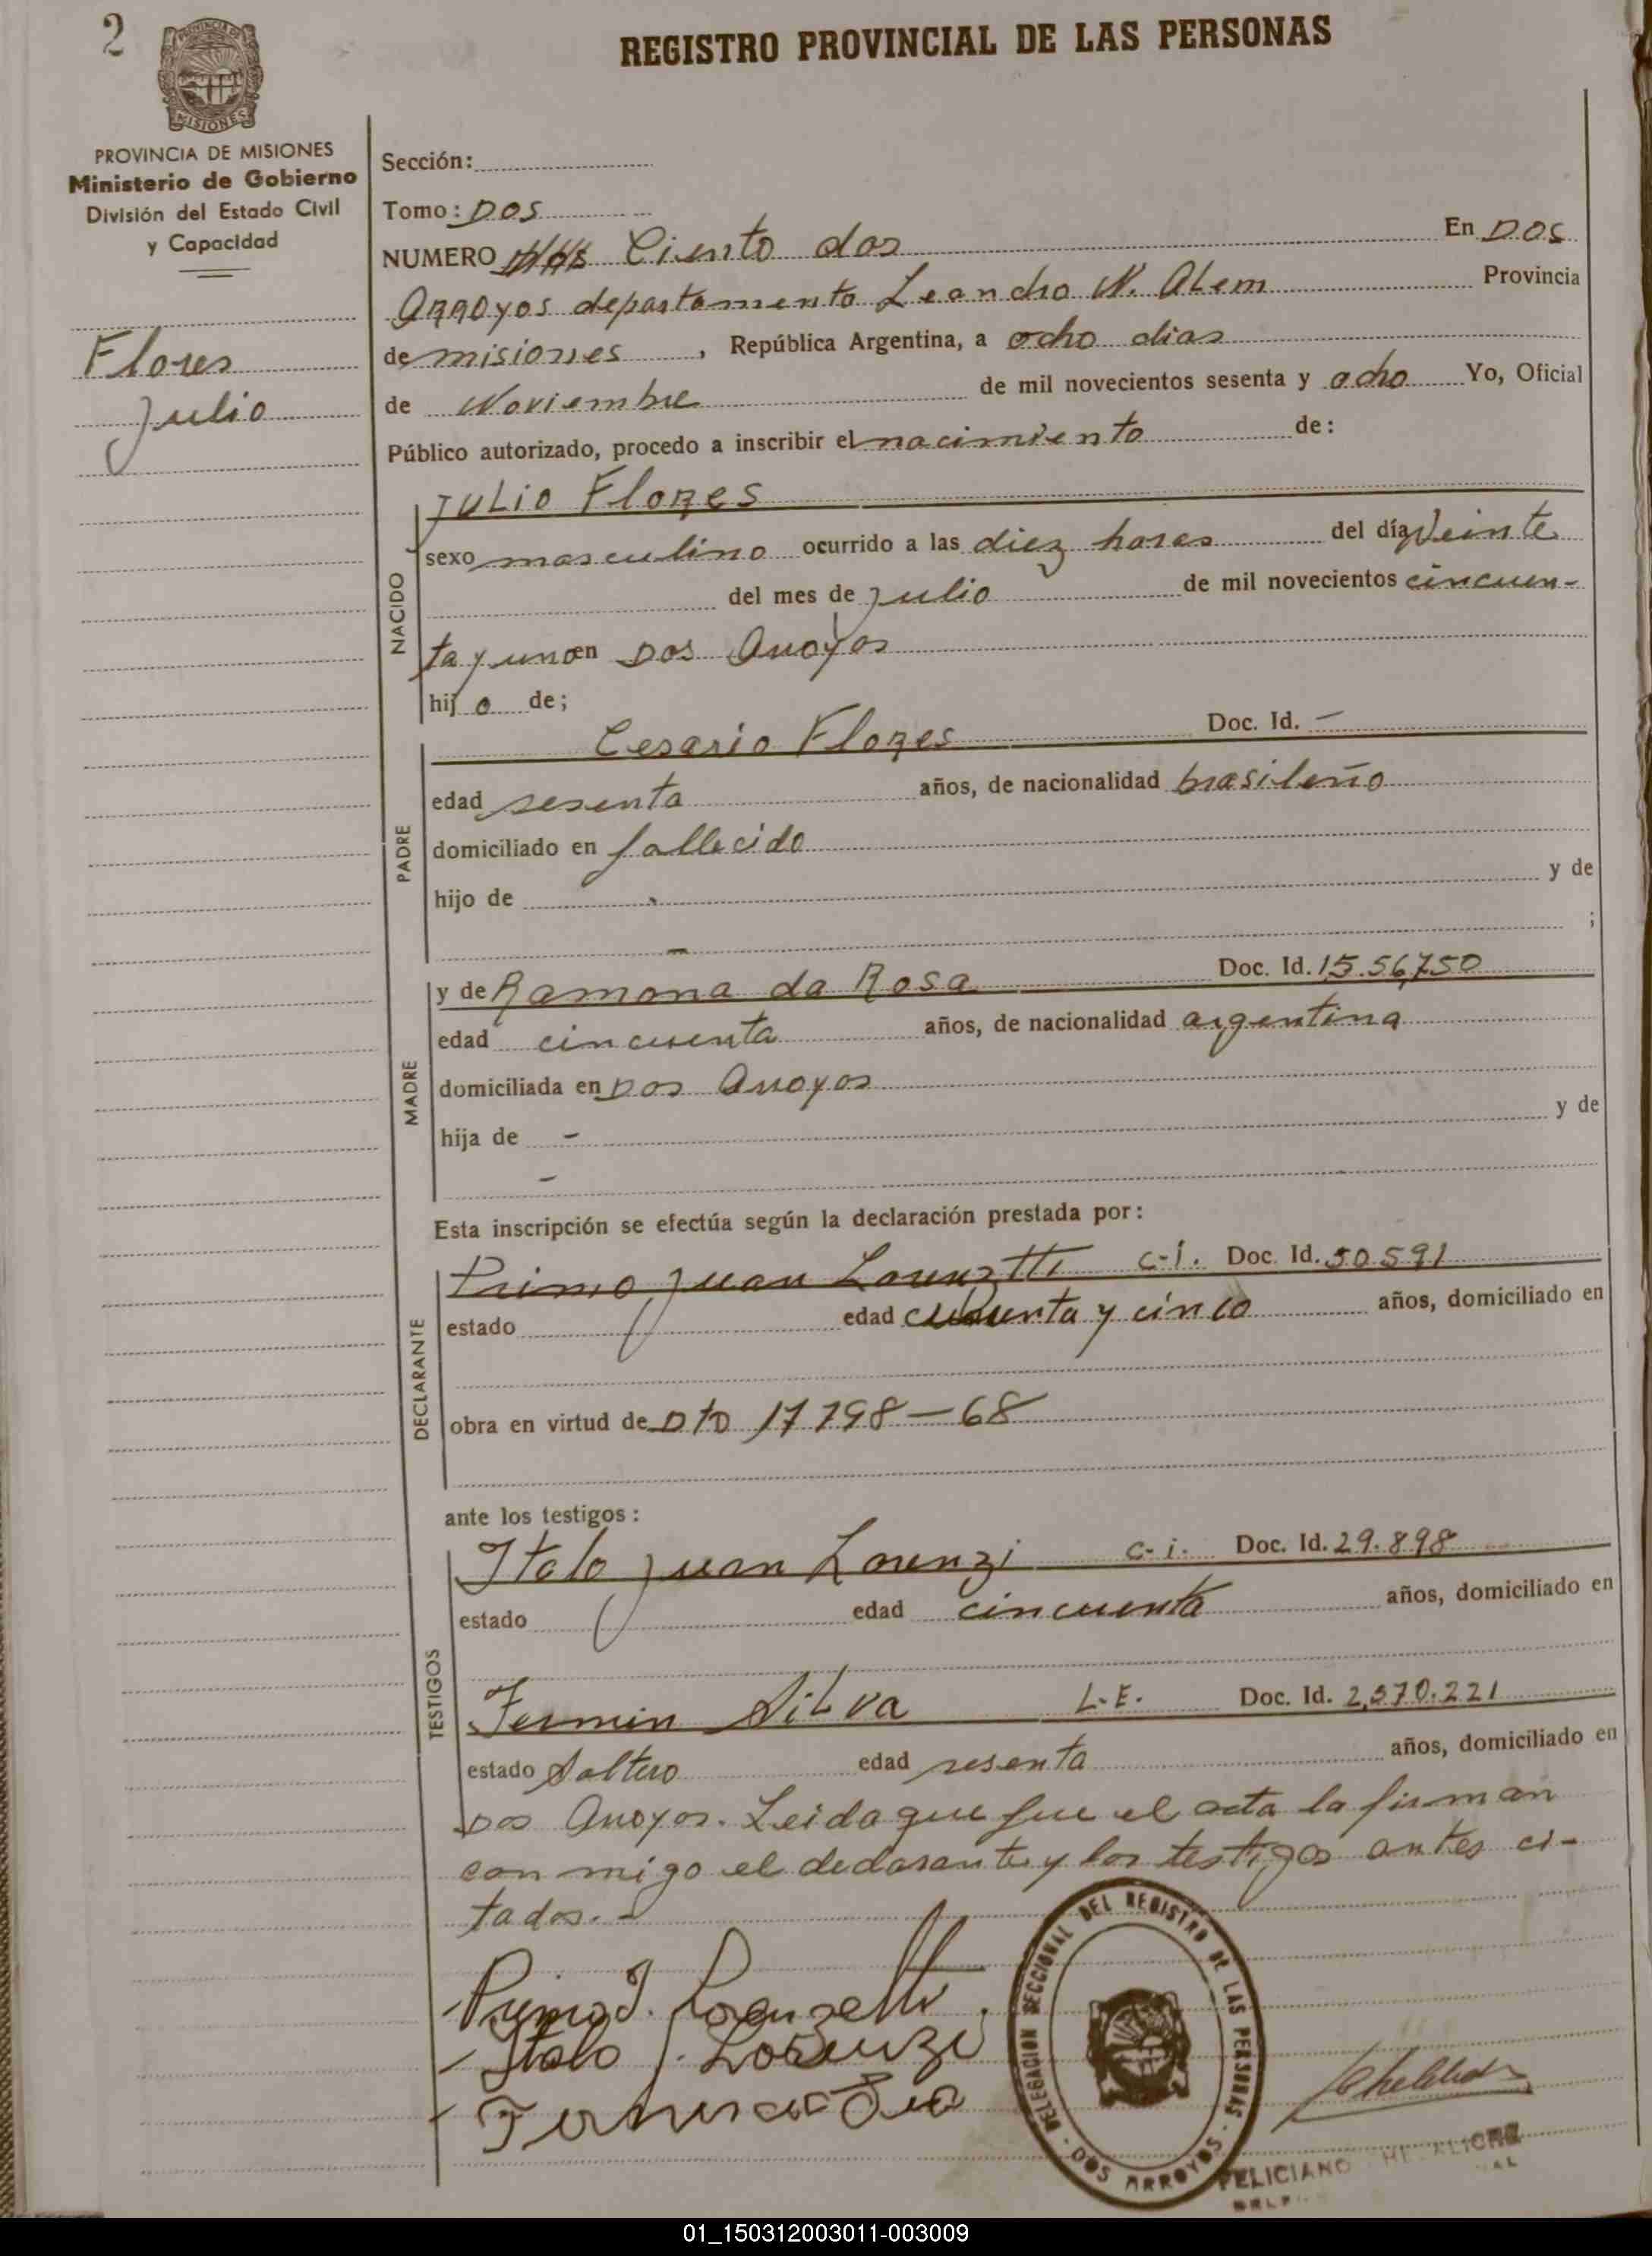 2
REGISTRO PROVINCIAL DE LAS PERSONAS
PROVINCIA DE MISIONES
Ministerio de Gobierno
División del Estado Civil
y Capacidad
Flores
Julio
Sección:
Tomo: DOS
NUMERO Ciento dos En DOS
Arroyos departamento Leandro N. Alem Provincia
de misiones, República Argentina, a ocho dias
de Noviembre de mil novecientos sesenta y ocho Yo, Oficial
Público autorizado, procedo a inscribir el nacimiento de:
NACIDO
JULIO Flores
sexo masculino ocurrido a las diez horas del día Veinte
del mes de Julio de mil novecientos cincuen-
ta y uno en Dos Arroyos
hijo de;
PADRE
Cesario Flores Doc. Id. —
edad sesenta años, de nacionalidad brasileño
domiciliado en fallecido
hijo de y de
— ;
MADRE
y de Ramona da Rosa Doc. Id. 15.56,750
edad cincuenta años, de nacionalidad argentina
domiciliada en Dos Arroyos
hija de - y de
-
Esta inscripción se efectúa según la declaración prestada por:
DECLARANTE
Primo Juan Lorenzetti c-i. Doc. Id. 50591
estado edad y cinco años, domiciliado en
obra en virtud de DTO 17798-68
ante los testigos:
TESTIGOS
Italo Juan Lorenzi c-i. Doc. Id. 29.898
estado edad cincuenta años, domiciliado en
Fermin Silva L.E. Doc. Id. 2,570.221
estado Soltero edad sesenta años, domiciliado en
Dos Arroyos. Leida que fue el acta la firman
con migo el declarante y los testigos antes ci-
tados.-
Primo J. Lorenzetti.
Italo J. Lorenzi
DELEGACION SECCIONAL DEL REGISTRO DE LAS PERSONAS - DOS ARROYOS -
FELICIANO
01_150312003011-003009